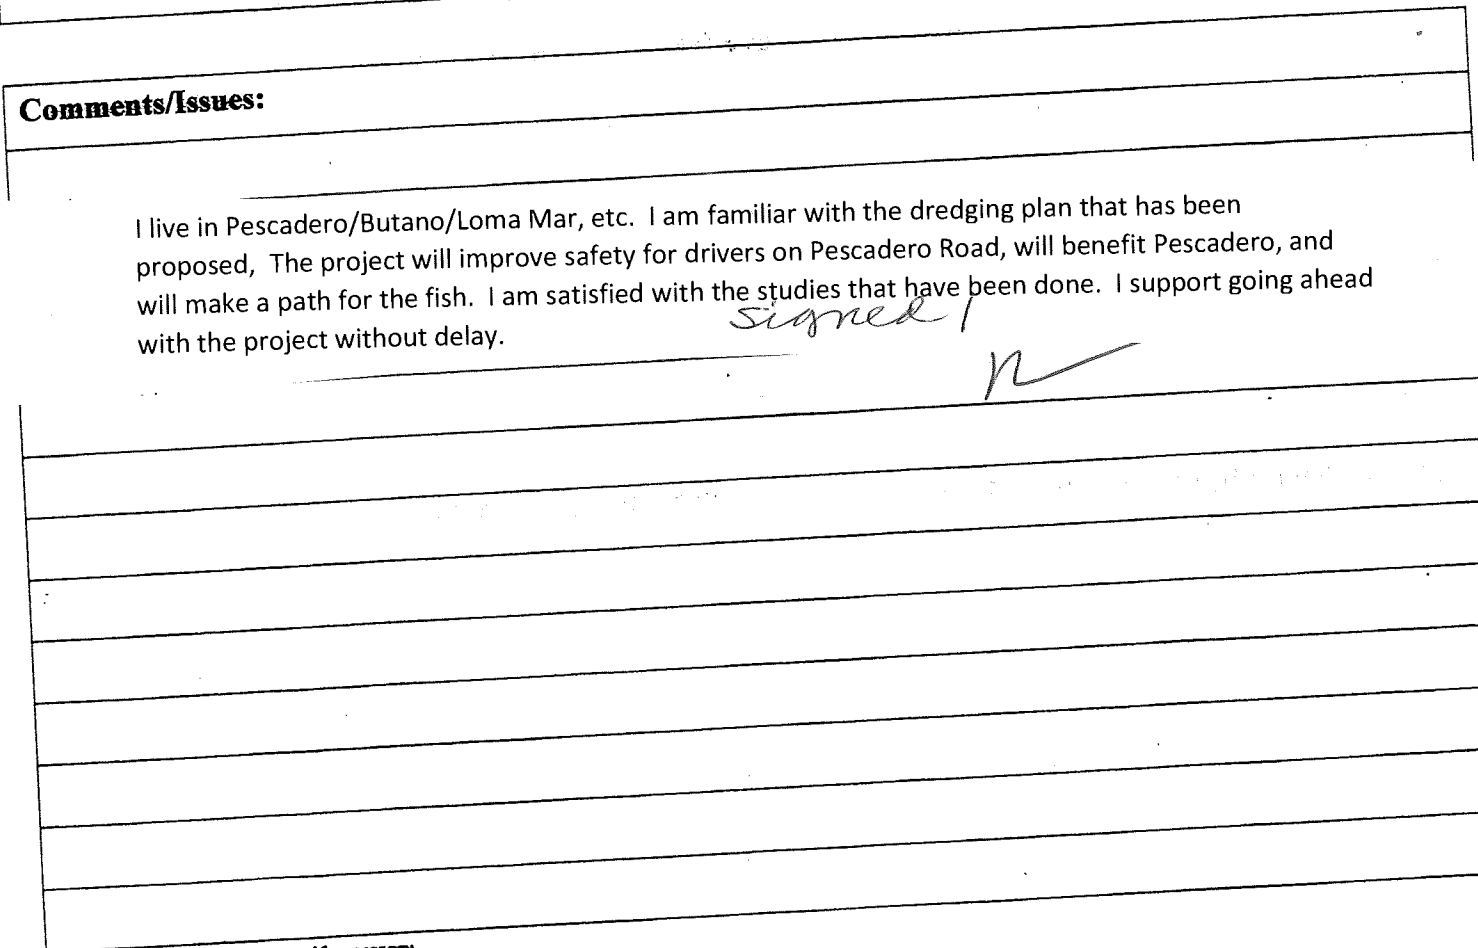 Comments/Issues:
I live in Pescadero/Butano/Loma Mar, etc.  I am familiar with the dredging plan that has been
proposed,  The project will improve safety for drivers on Pescadero Road, will benefit Pescadero, and
will make a path for the fish.  I am satisfied with the studies that have been done.  I support going ahead
with the project without delay.
signed